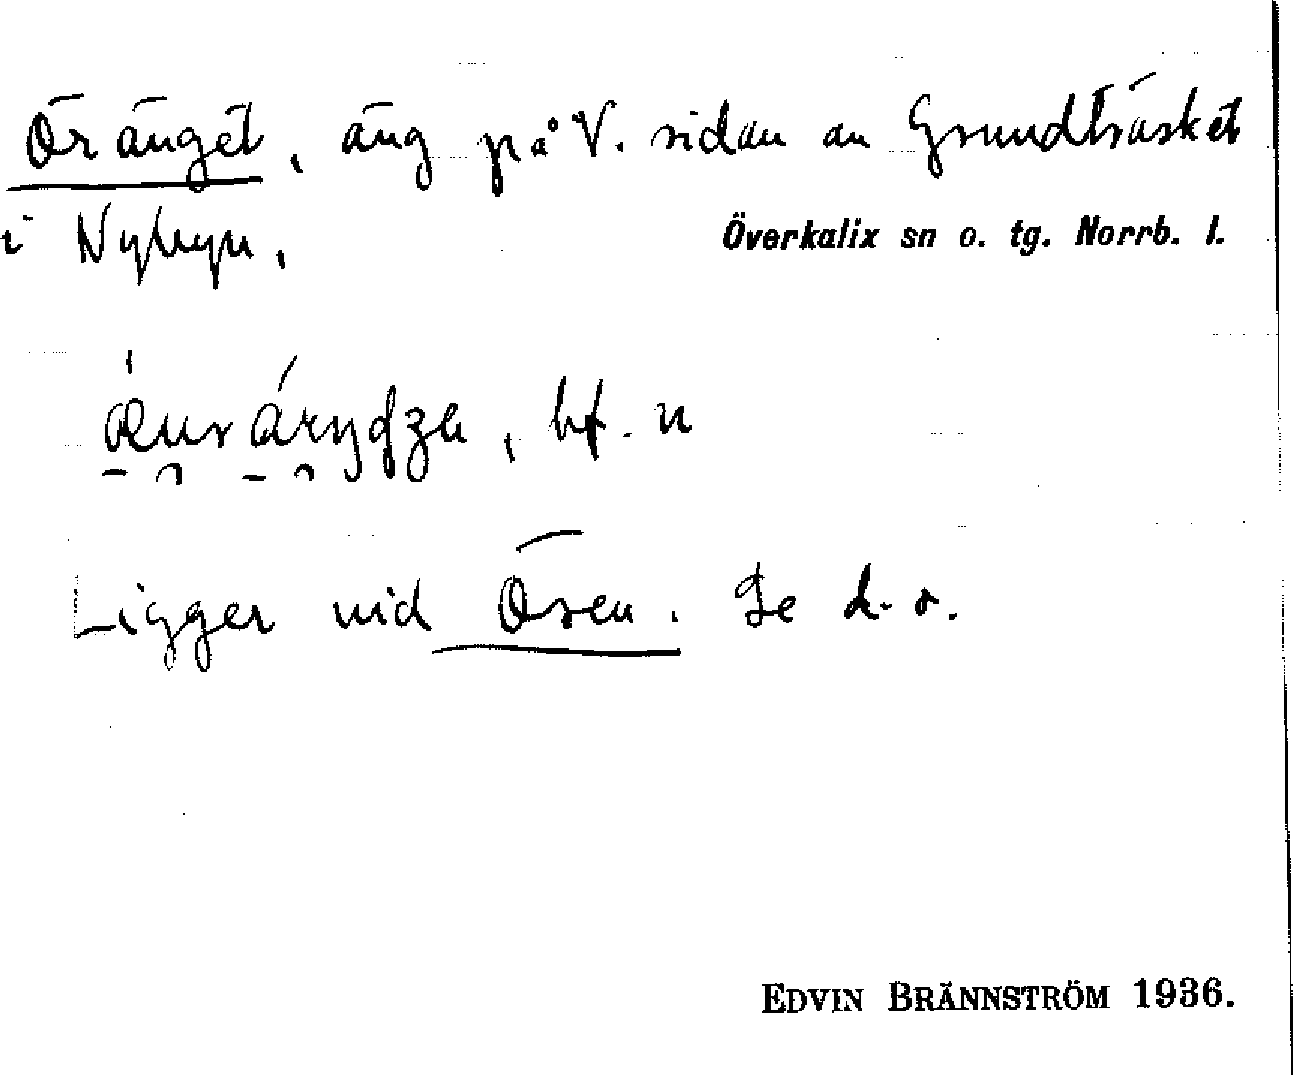 Öränget, äng på V. sidan av Grundträsket
i Nybyn. Överkalix sn o. tg. Norrb. l.
, bf. n
Ligger vid Ören. Se d. o.
EDVIN BRÄNNSTRÖM 1936.